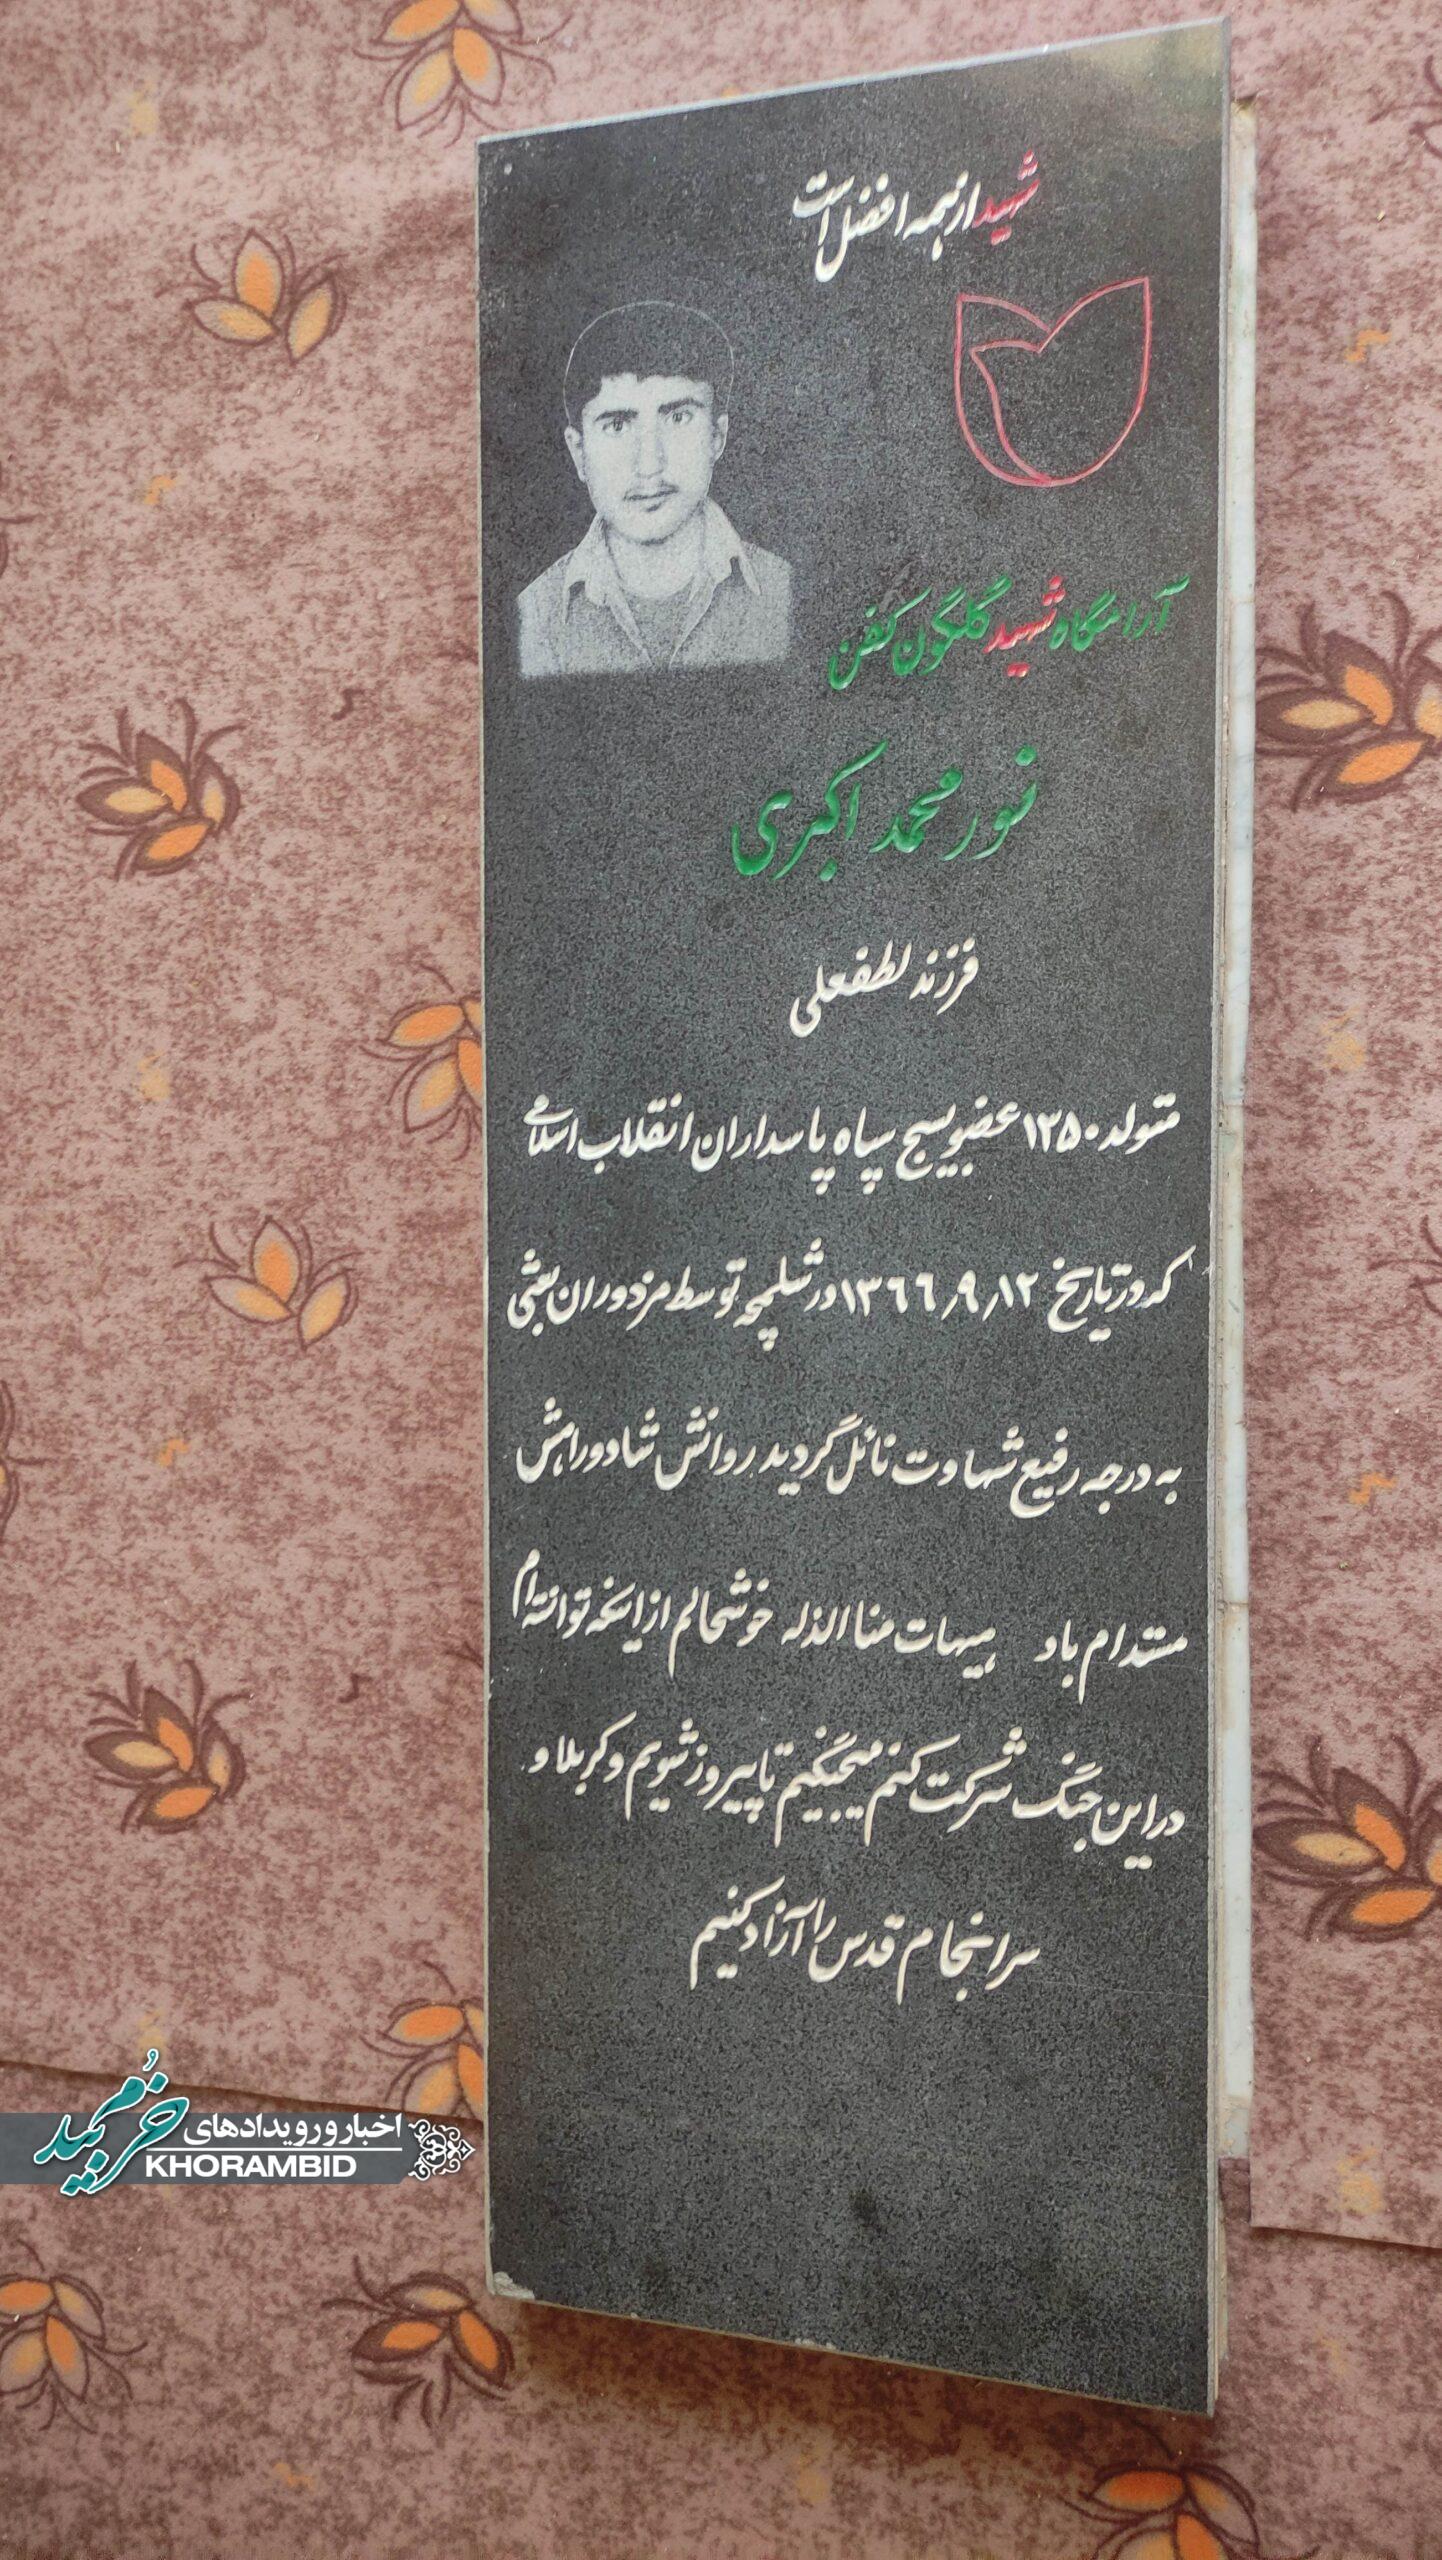 شهید از همه افضل است
آرامگاه شهید گلگون کفن
نور محمد اکبری
فرزند لطفعلی
متولد ۱۳۵۰ عضو بسیج سپاه پاسداران انقلاب اسلامی
که در تاریخ ۱۳۶۶/۹/۱۲ در شلمچه توسط مزدوران بعثی
به درجه رفیع شهادت نائل گردید روانش شاد و راهش
مستدام باد هیهات منا الذله خوشحالم از اینکه توانسته ام
در این جنگ شرکت کنم میجنگیم تا پیروز شویم و کربلا و
سرانجام قدس را آزاد کنیم
اخبار و رویدادهای
خرمبید
KHORAMBID